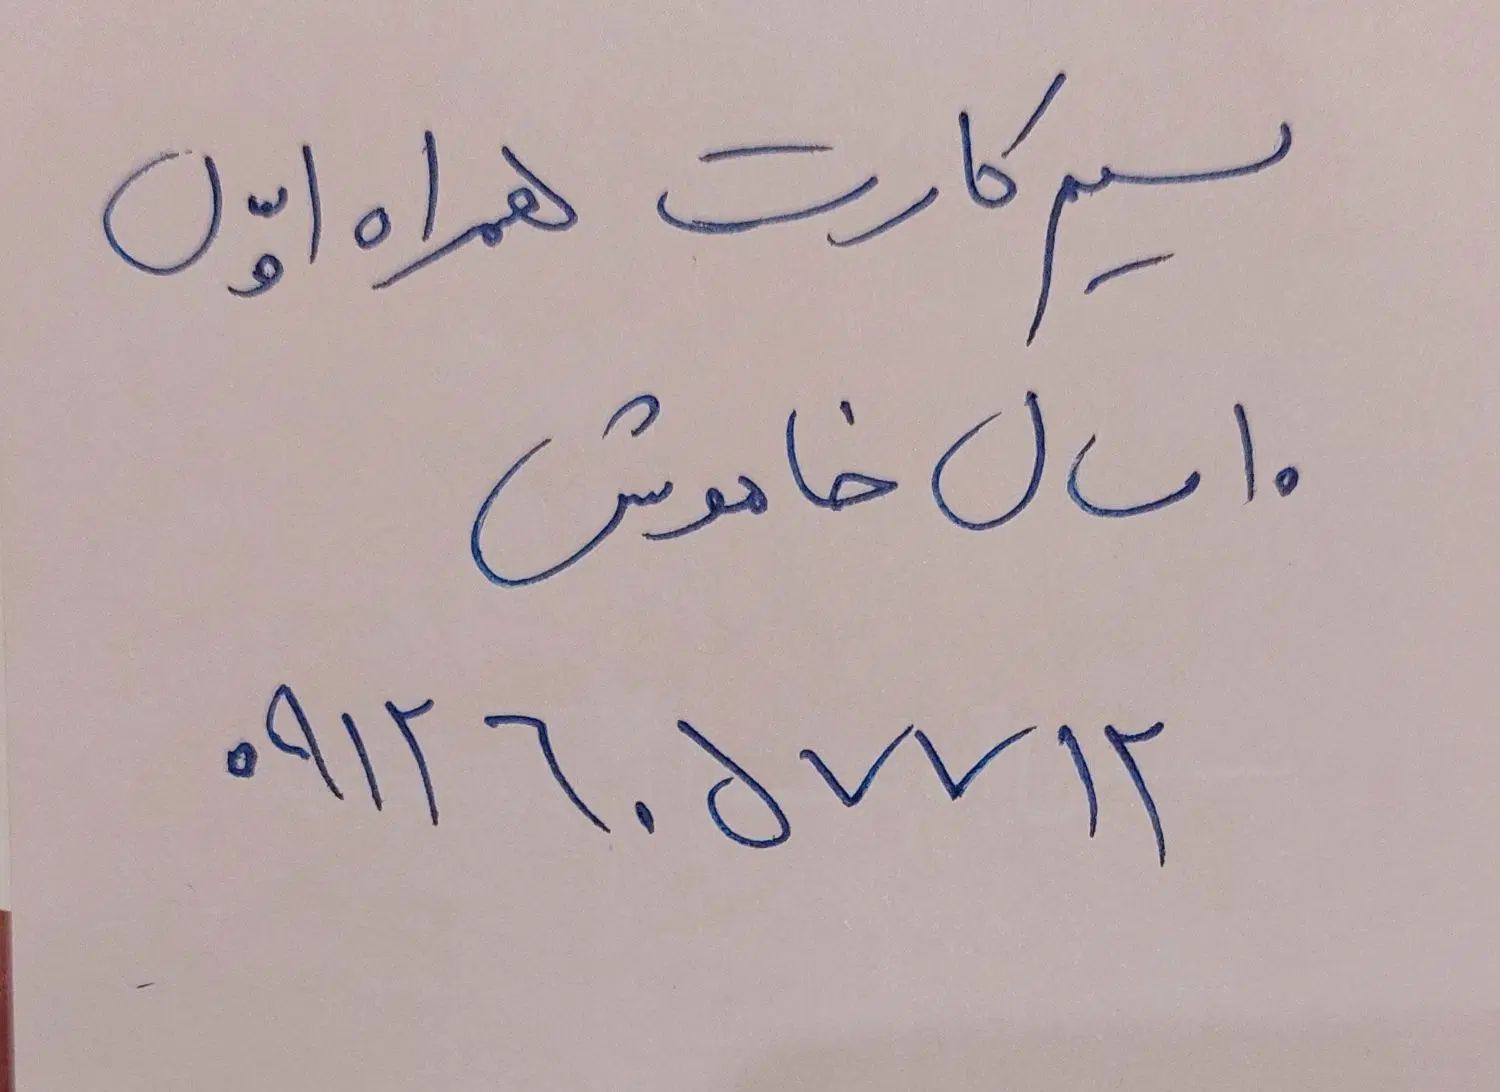 سیم کارت همراه اوّل
۱۰ سال خاموش
۰۹۱۲۶۰۵۷۷۱۲